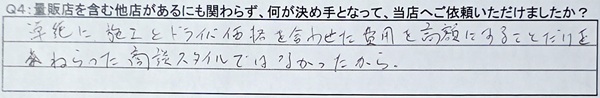 Q4:量販店を含む他店があるにも関わらず、何が決め手となって、当店へご依頼いただけましたか？
単純に施工とドライバ価格を合わせた費用を高額にすることだけを
ねらった商談スタイルではなかったから。